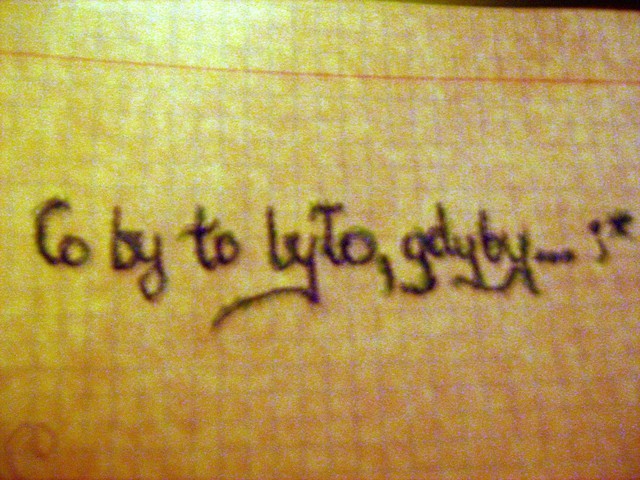 Co by to było, gdyby... ;*